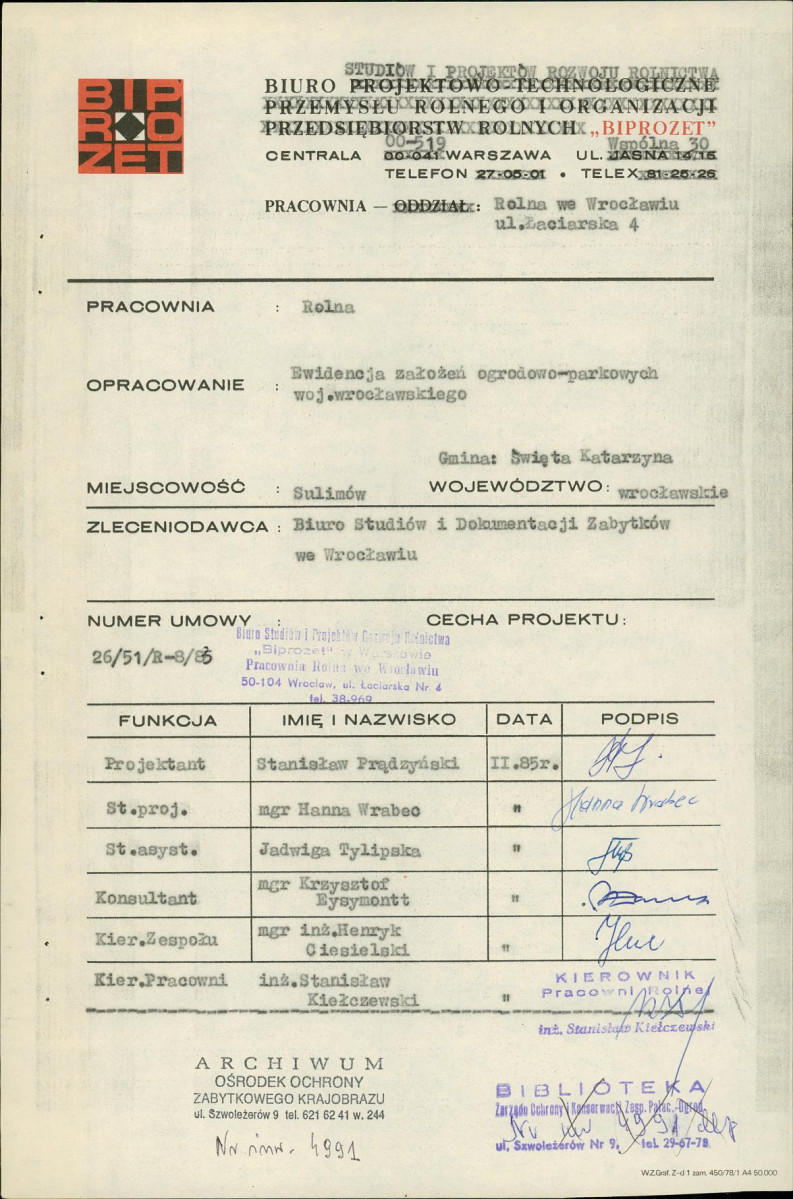 BIP
RO
ZET
STUDIÓW I PROJEKTÓW ROZWOJU ROLNICTWA
BIURO PROJEKTOWO-TECHNOLOGICZNE
PRZEMYSŁU ROLNEGO I ORGANIZACJI
PRZEDSIĘBIORSTW ROLNYCH „BIPROZET"
00-519 Wspólna 30
CENTRALA 00-041 WARSZAWA UL. JASNA 14/16
TELEFON 27-05-01 • TELEX 81-25-26
PRACOWNIA — ODDZIAŁ: Rolna we Wrocławiu
ul.Łaciarska 4
PRACOWNIA : Rolna
OPRACOWANIE : Ewidencja założeń ogrodowo-parkowych
woj.wrocławskiego
Gmina: Święta Katarzyna
MIEJSCOWOŚĆ : Sulimów WOJEWÓDZTWO: wrocławskie
ZLECENIODAWCA : Biuro Studiów i Dokumentacji Zabytków
we Wrocławiu
NUMER UMOWY : CECHA PROJEKTU:
26/51/R-8/83
Biuro Studiów i Projektów Rozwoju Rolnictwa
„Biprozet" w Warszawie
Pracownia Rolna we Wrocławiu
50-104 Wrocław, ul. Łaciarska Nr 4
tel. 38-969
FUNKCJA IMIĘ I NAZWISKO DATA PODPIS
Projektant Stanisław Prądzyński II.85r.
St.proj. mgr Hanna Wrabec " Hanna Wrabec
St.asyst. Jadwiga Tylipska "
Konsultant mgr Krzysztof
Eysymontt "
Kier.Zespołu mgr inż.Henryk
Ciesielski "
Kier.Pracowni inż.Stanisław
Kiełczewski "
KIEROWNIK
Pracowni Rolnej
inż. Stanisław Kiełczewski
ARCHIWUM
OŚRODEK OCHRONY
ZABYTKOWEGO KRAJOBRAZU
ul. Szwoleżerów 9 tel. 621 62 41 w. 244
Nr inw. 4991
BIBLIOTEKA
Zarządu Ochrony i Konserwacji Zesp. Pałac.-Ogrod.
Nr inw 4991
ul. Szwoleżerów Nr 9, tel. 29-67-78
W.Z.Graf. Z-d 1 zam. 450/78/1 A4 50.000